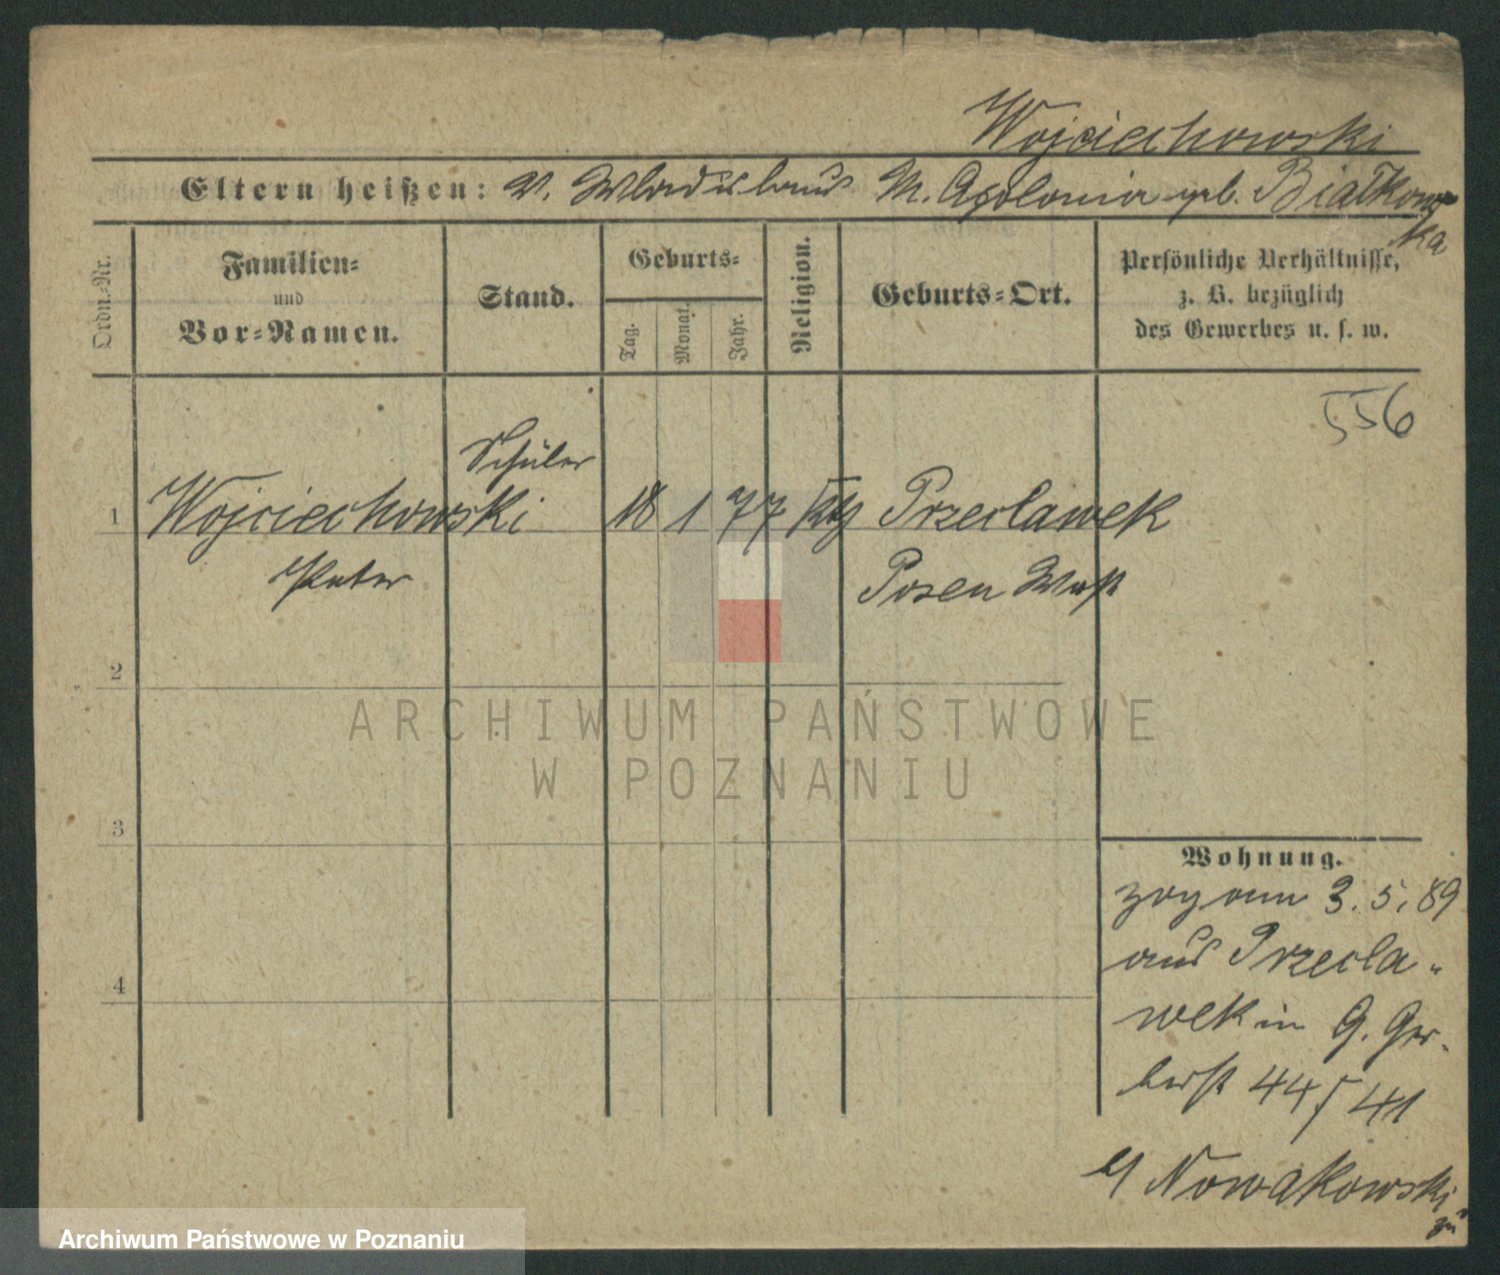 Wojciechowski
Eltern heißen: V. Wladislaus M. Apolonia geb. Białkows
ka
Ordn.-Nr.
Familien-
und
Vor-Namen.
Stand.
Geburts-
Tag.
Monat.
Jahr.
Religion.
Geburts-Ort.
Persönliche Verhältnisse,
z. B. bezüglich
des Gewerbes u. s. w.
556
Schüler
1 Wojciechowski 18 1 77 kth Przeclawek
Peter Posen West
2
3
4
Wohnung.
zog am 3.5.89
aus Przecla-
wek in G. Ger-
berst 44/41
b/ Nowakowski
ARCHIWUM PAŃSTWOWE
W POZNANIU
Archiwum Państwowe w Poznaniu